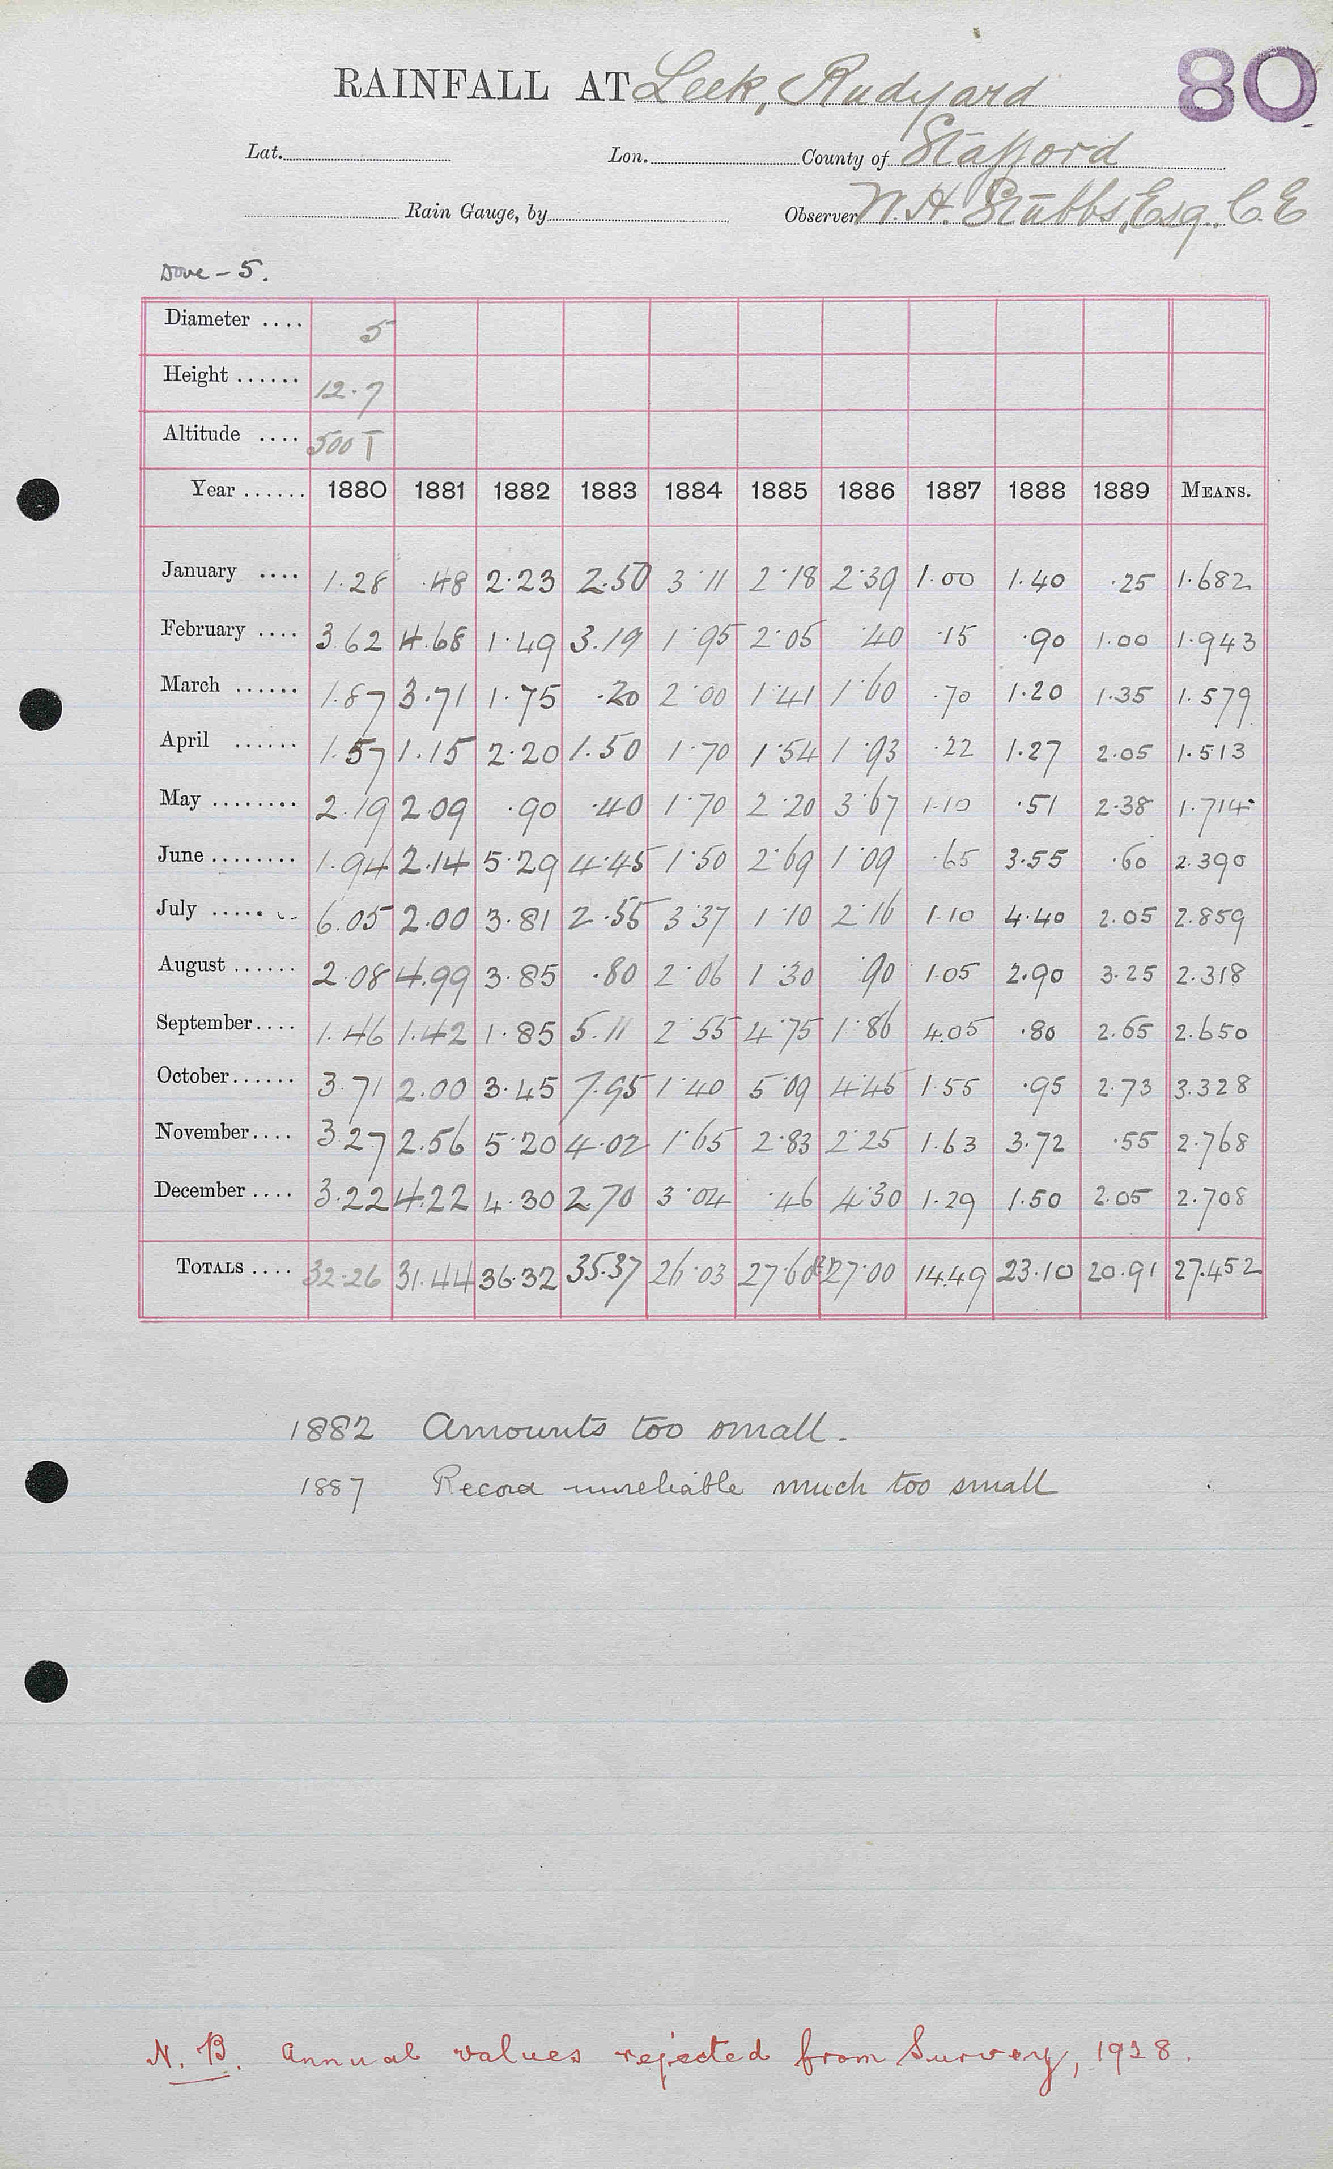 RAINFALL AT Leek, Rudyard 80
Lat. Lon. County of Stafford
Rain Gauge, by Observer W. H. Stubbs, Esq., C.E
Dove - 5.
Diameter .... 5
Height ...... 12.7
Altitude .... 500 T
Year ...... 1880 1881 1882 1883 1884 1885 1886 1887 1888 1889 MEANS.
January .... 1.28 .48 2.23 2.50 3.11 2.18 2.39 1.00 1.40 .25 1.682
February .... 3.62 4.68 1.49 3.19 1.95 2.05 .40 .15 .90 1.00 1.943
March ...... 1.87 3.71 1.75 .20 2.00 1.41 1.60 .70 1.20 1.35 1.579
April ...... 1.57 1.15 2.20 1.50 1.70 1.54 1.93 .22 1.27 2.05 1.513
May ........ 2.19 2.09 .90 .40 1.70 2.20 3.67 1.10 .51 2.38 1.714
June ........ 1.94 2.14 5.29 4.45 1.50 2.69 1.09 .65 3.55 .60 2.390
July ........ 6.05 2.00 3.81 2.55 3.37 1.10 2.16 1.10 4.40 2.05 2.859
August ...... 2.08 4.99 3.85 .80 2.06 1.30 .90 1.05 2.90 3.25 2.318
September .... 1.46 1.42 1.85 5.11 2.55 4.75 1.86 4.05 .80 2.65 2.650
October ...... 3.71 2.00 3.45 7.95 1.40 5.09 4.45 1.55 .95 2.73 3.328
November .... 3.27 2.56 5.20 4.02 1.65 2.83 2.25 1.63 3.72 .55 2.768
December .... 3.22 4.22 4.30 2.70 3.04 .46 4.30 1.29 1.50 2.05 2.708
TOTALS .... 32.26 31.44 36.32 35.37 26.03 27.60 27.00 14.49 23.10 20.91 27.452
1882 Amounts too small.
1887 Record unreliable much too small
N.B. Annual values rejected from Survey, 1928.